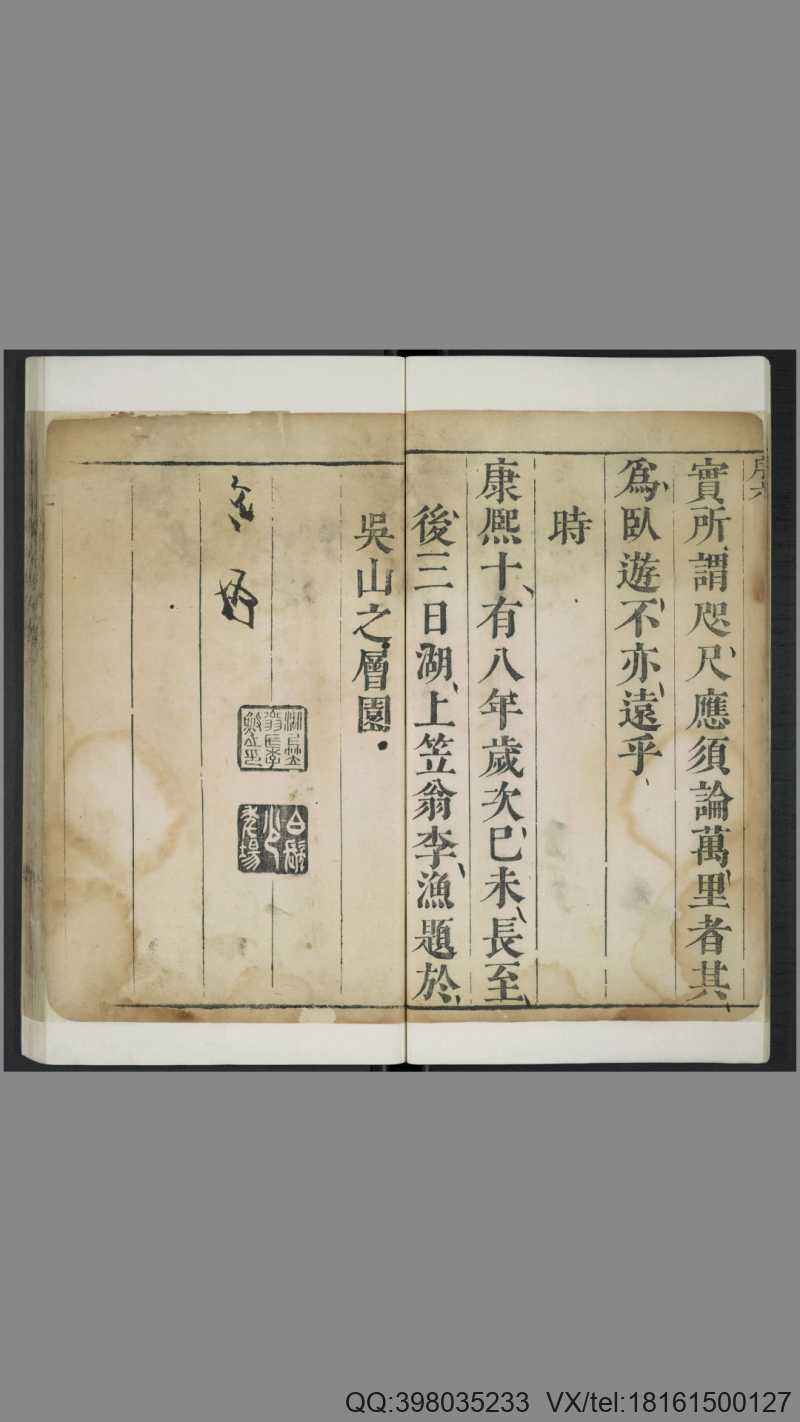 實所謂咫尺應須論萬里者其
爲臥遊不亦遠乎
時
康熈十有八年歲次已未長至
後三日湖上笠翁李漁題於
吳山之層園
QQ:398035233 VX/tel:18161500127